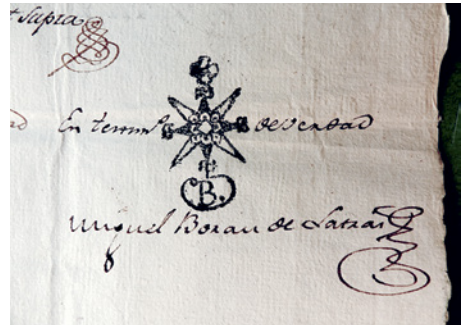 t Supra
ad En testimº de verdad
B.
Miguel Borau de Latras